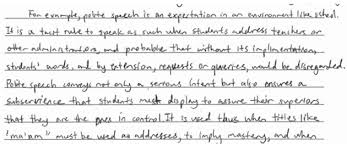 For example, polite speech is an expectation in an environment like school.
It is a tacit rule to speak as such when students address teachers or
other administrators, and probable that without its implimentation,
students' words, and by extension, requests or queries, would be disregarded.
Polite speech conveys not only a serious intent but also ensures a
subservience that students must display to assure their superiors
that they are the ones in control. It is used thus when titles like
"ma'am" must be used as addresses, to imply mastery, and when